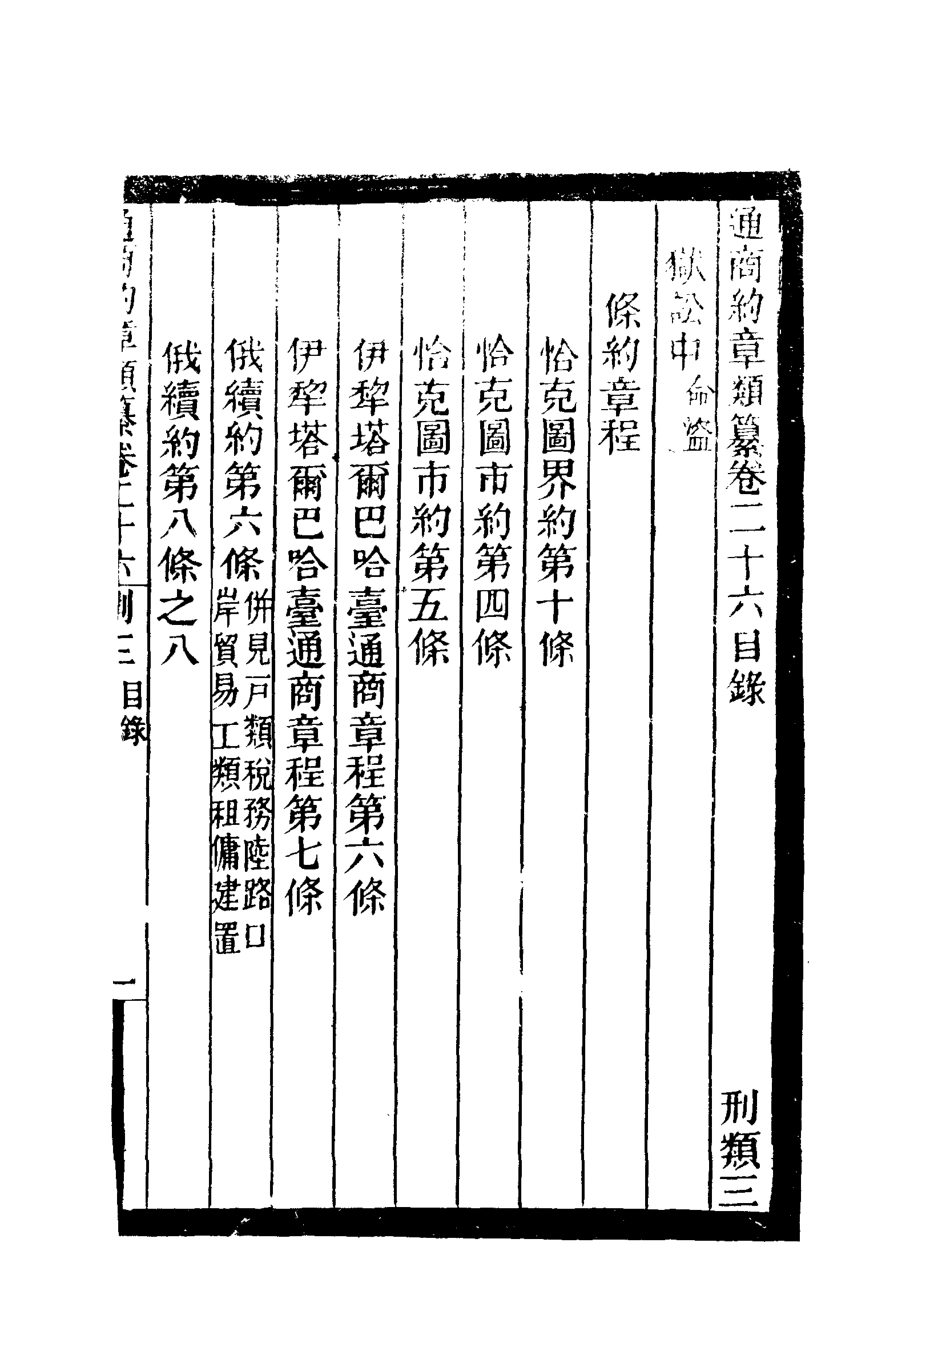 通商約章類纂卷二十六目錄 刑類三
獄訟中命盜
條約章程
恰克圖界約第十條
恰克圖市約第四條
恰克圖市約第五條
伊犂塔爾巴哈臺通商章程第六條
伊犂塔爾巴哈臺通商章程第七條
俄續約第六條併見戶類稅務陸路口岸貿易工類租傭建置
俄續約第八條之八
通商約章類纂卷二十六 刑三 目錄 一